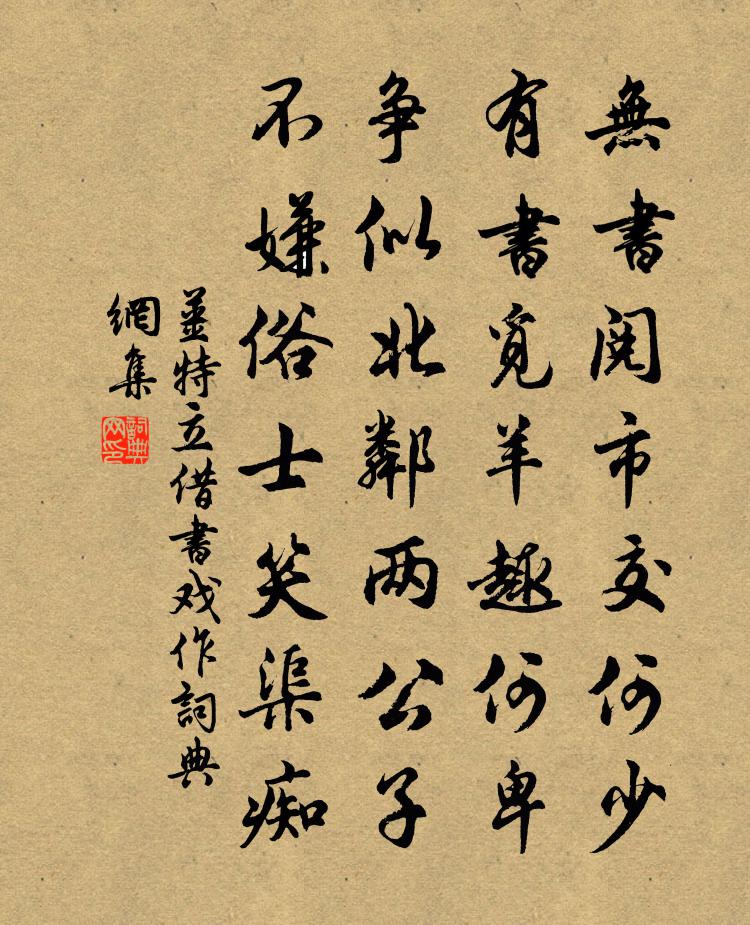 無書閱市交何少
有書覓羊趣何卑
争似北鄰两公子
不嫌俗士笑渠痴
薑特立借書戏作詞典
網集
詞典
网印